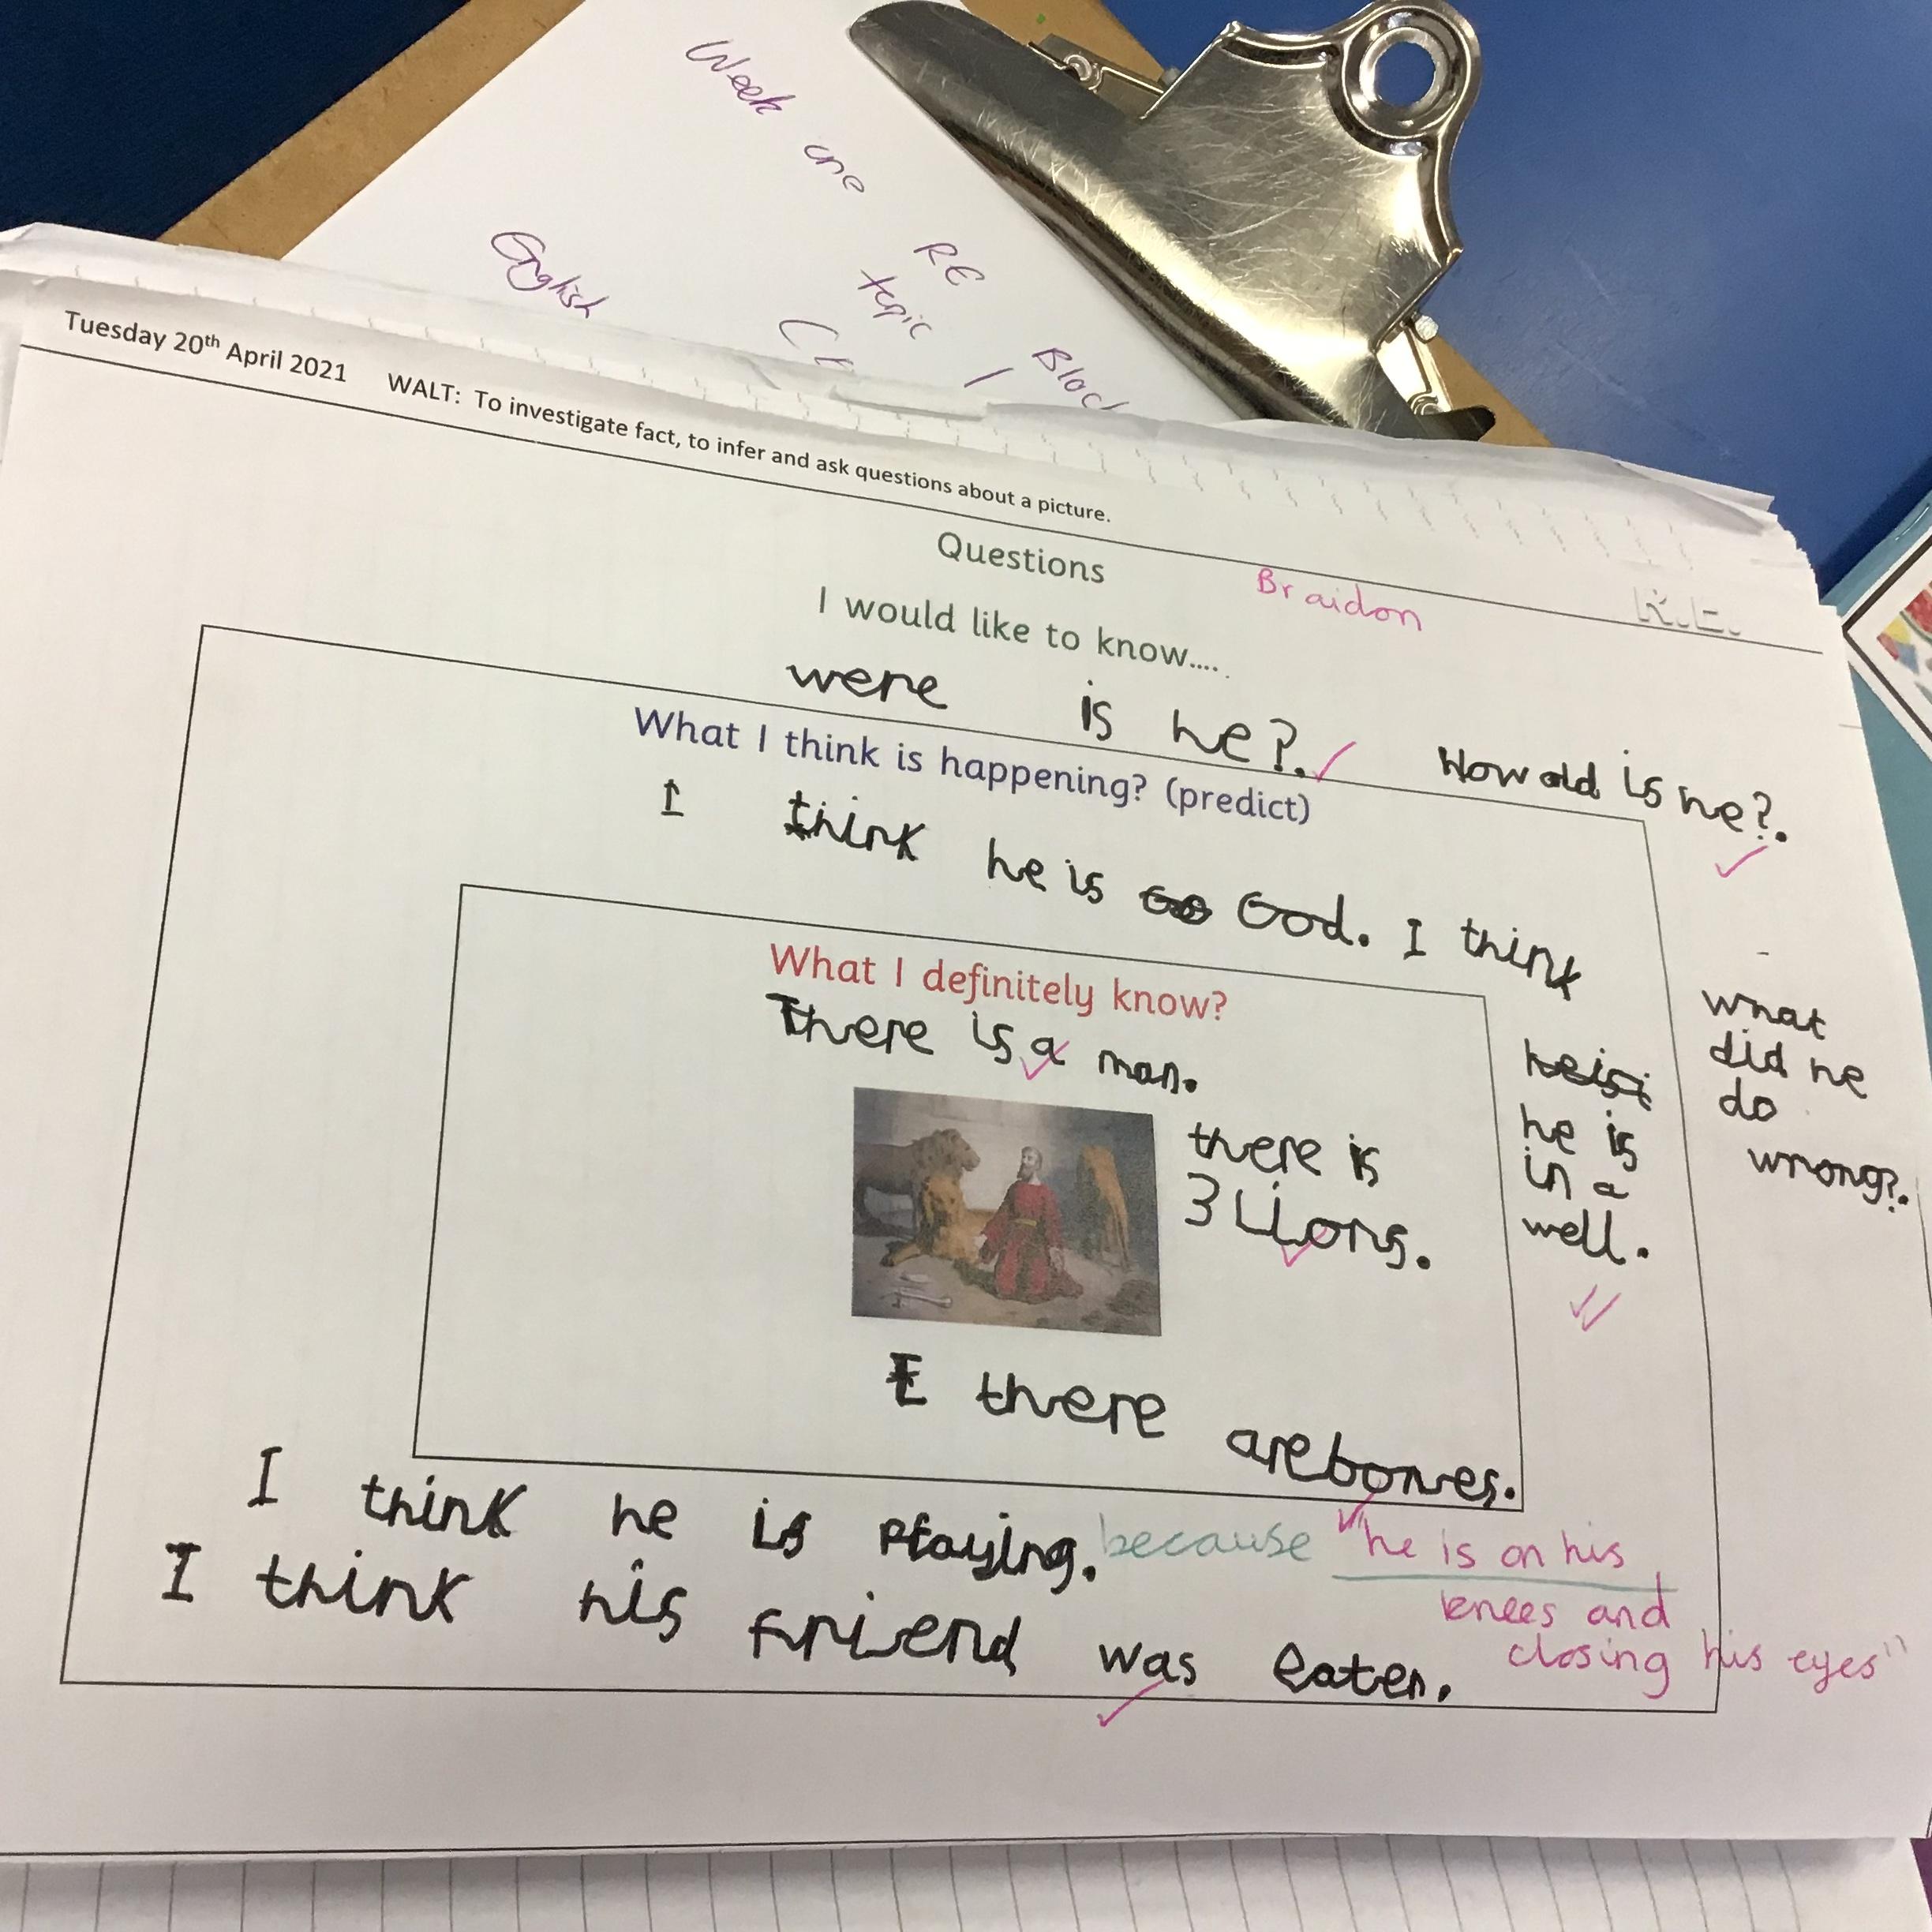 Week one
English
RE
topic
Block
Tuesday 20th April 2021 WALT: To investigate fact, to infer and ask questions about a picture.
R.E.
Questions
Braidon
I would like to know....
were is he?.
How old is he?.
what
did he
do
wrong?.
What I think is happening? (predict)
I think he is God. I think
he is
in a
well.
What I definitely know?
There is a man.
there is
3 Lions.
there are bones.
I think he is Playing. because "he is on his
knees and
closing his eyes"
I think his friend was eaten.